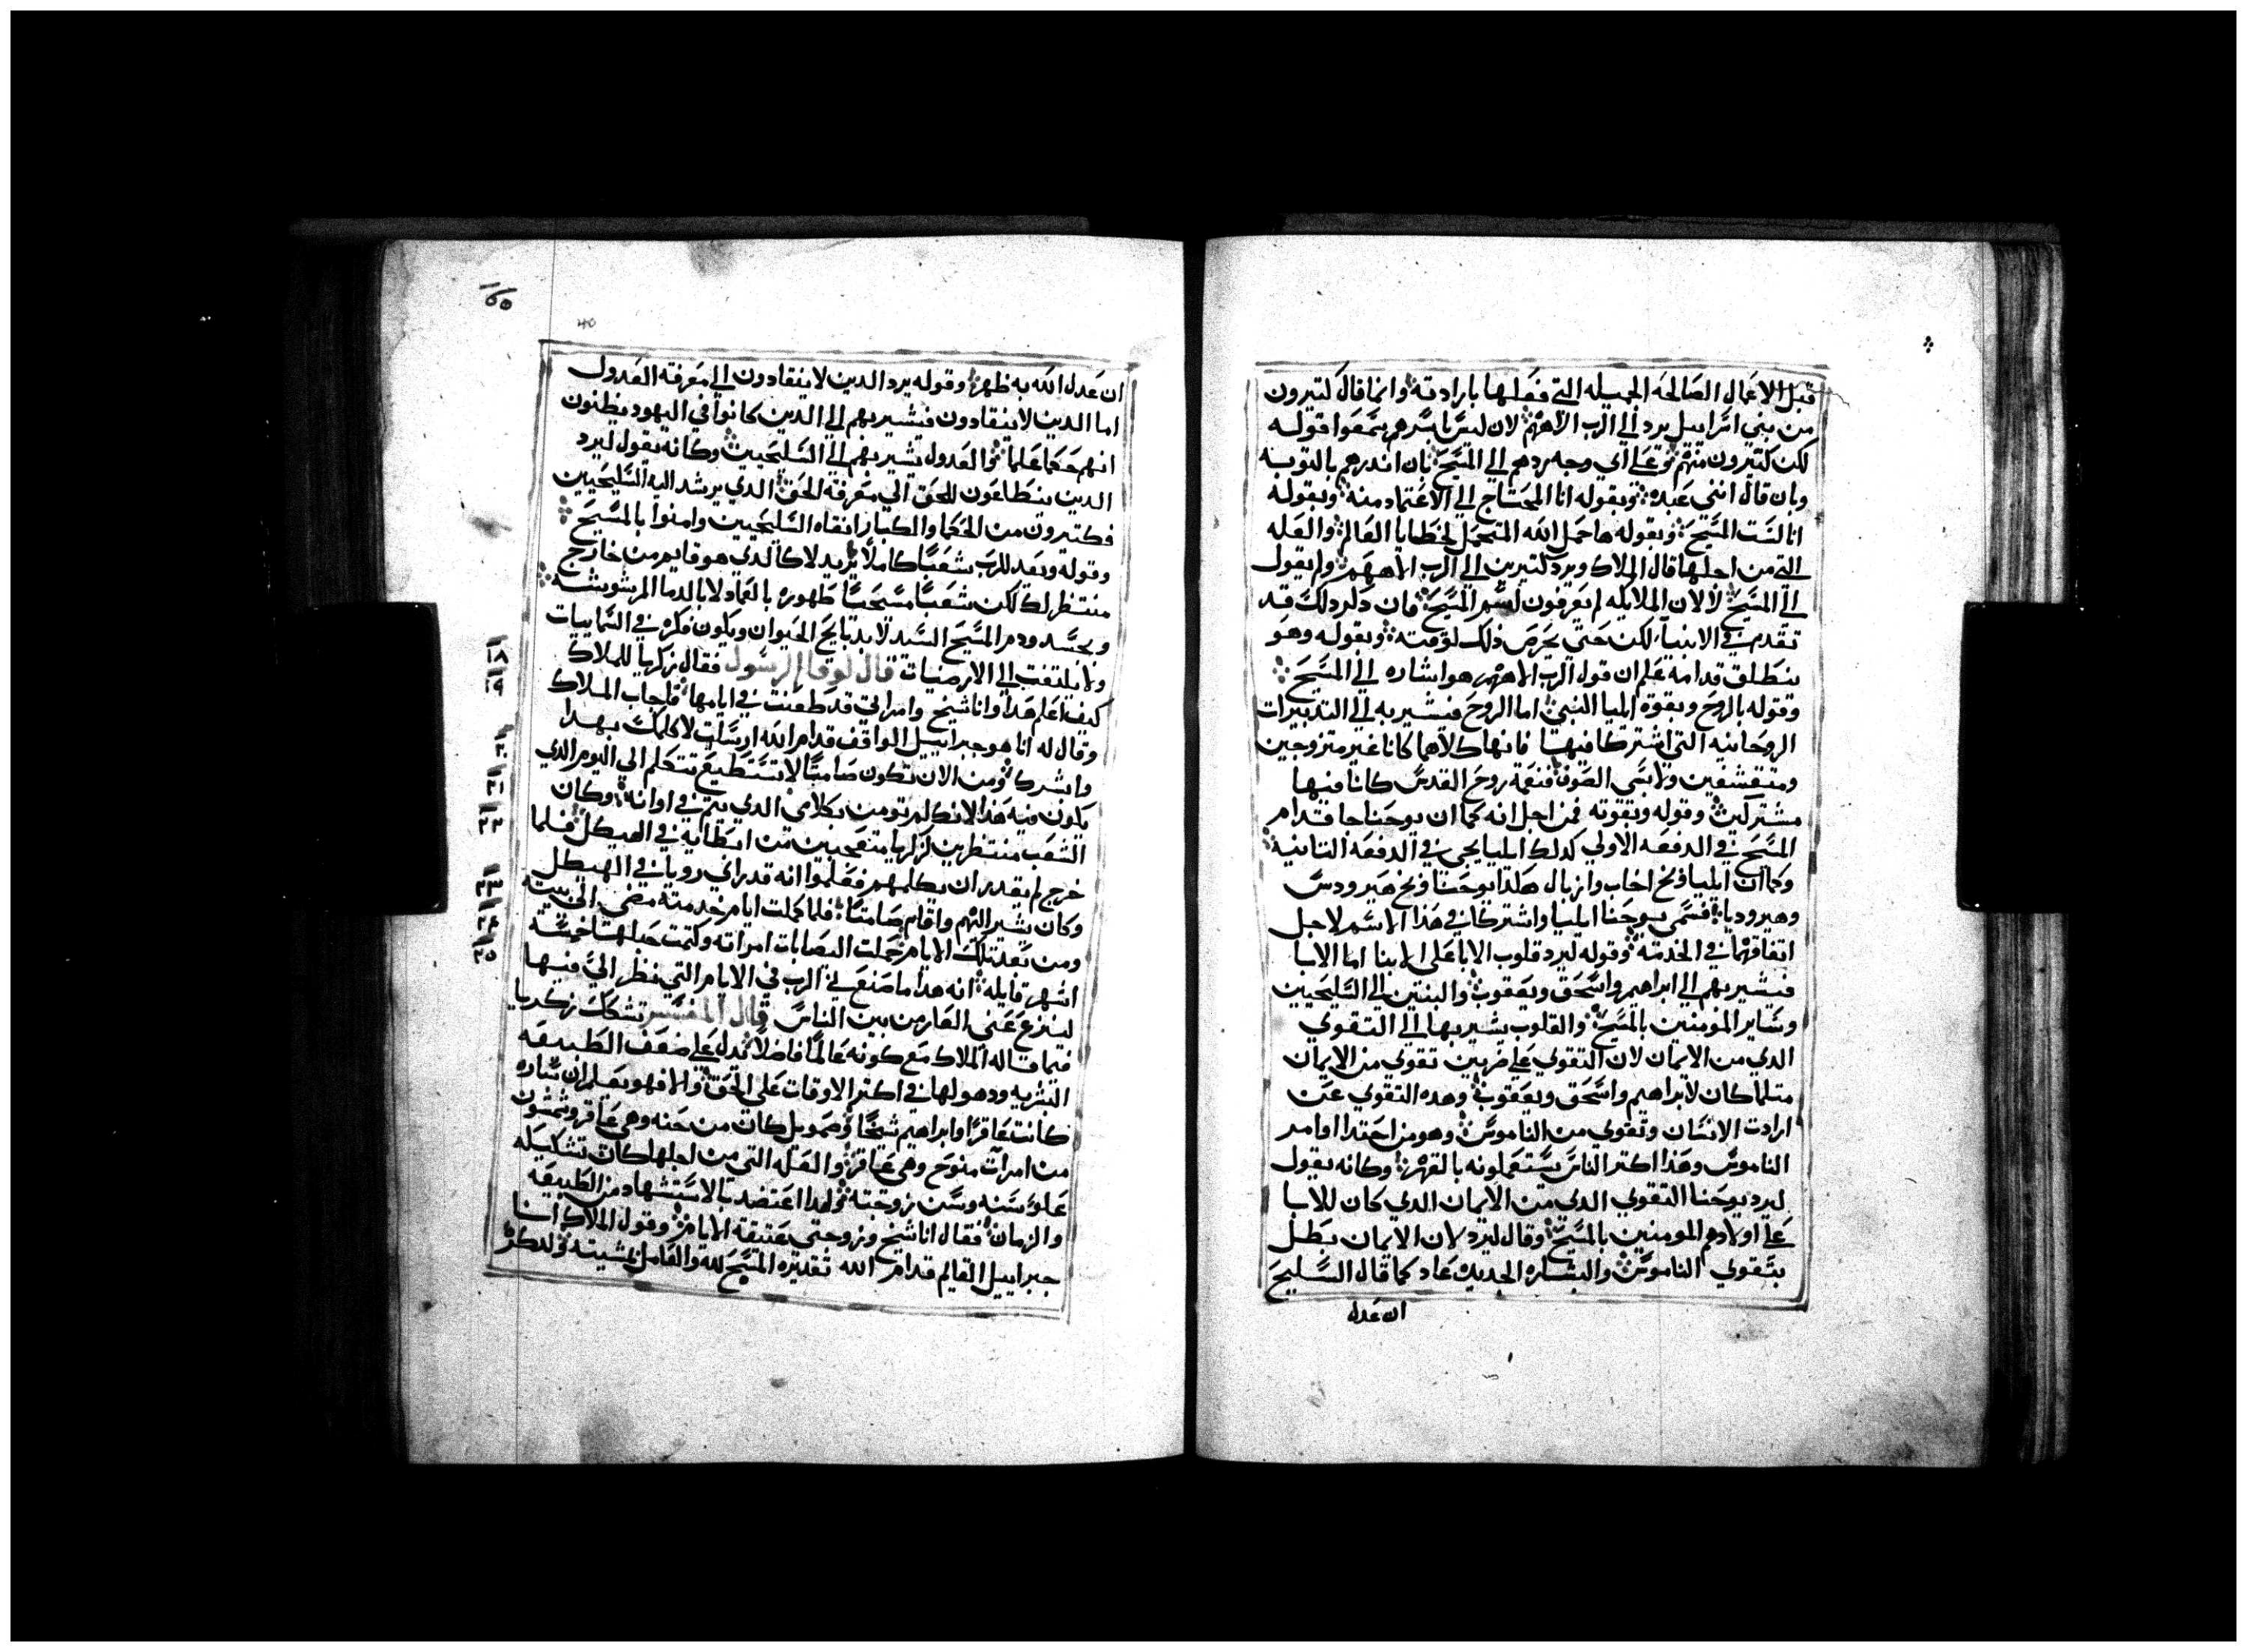 قبل الاعمال الصالحه الجميله التي فعلها بارادته وانما قال كتيرون
من بني اسراييل يرد الي الرب الاههم لان ليس باسرهم سمعوا قوله
لكن كتيرون منهم وعلي اي وجه ردهم الي المسيح بان اندرهم بالتوبه
وبان قال انني عبده وبقوله انا المحتاج الي الاعتماد منه وبقوله
انا لست المسيح وبقوله ها حمل الله المتحمل لخطايا العالم والعله
التي من اجلها قال الملاك ويرد كتيرين الي الرب الاههم ولم يقول
الي المسيح لان الملايله لم يعرفون لسم المسيح فان دلر دلك قد
تقدم في الانبيا لكن حتي يحرص ذلك لوقته وبقوله وهو
ينطلق قدامه علم ان قول الرب الاههم هو اشاره الي المسيح
وقوله بالروح وبقوة ايليا النبي اما الروح فيشير به الي التدبيرات
الروحانيه التي اشتركا فيها فانها كلاهما كانا غير متزوجين
ومتقشفين ولابسي الصوف فنعمة روح القدس كانا فيها
مشتركين وقوله وبقوته فمن اجل انه كما ان يوحنا جا قدام
المسيح في الدفعه الاولي كدلك ايليا يجي في الدفعه التانيه
وكما ان ايليا وبخ اخاب وازبال هكدا يوحنا وبخ هيرودس
وهيروديا فسمي يوحنا ايليا واشتركا في هذا الاسم لاجل
اتفاقهما في الخدمه وقوله ليرد قلوب الابا علي الابنا اما الابا
فيشير بهم الي ابراهيم واسحق ويعقوب والبنين الي السليحيين
وساير المومنين بالمسيح والقلوب يشير بها الي التقوي
الدي من الايمان لان التقوي علي ضربين تقوي من الايمان
متلما كان لابراهيم واسحق ويعقوب وهده التقوي عن
ارادت الانسان وتقوي من الناموس وهو من اجتدا اوامر
الناموس وهذا اكتر الناس يستعملونه بالقهر وكانه يقول
ليرد يوحنا التقوي الدي من الايمان الدي كان للابا
علي اولادهم المومنين بالمسيح وقال ليرد لان الايمان بطل
بتقوي الناموس والبشاره الجديده عاد كما قال السليح
ان عدل
١٦٥
ان عدل الله به ظهر وقوله يرد الدين لا ينقادون الي معرفة العدول
اما الدين لا ينقادون فيشير بهم الي الدين كانوا في اليهود يظنون
انهم حكما علما والعدول يشير بهم الي السليحيين وكانه يقول ليرد
الدين ينطاعون للحق الي معرفة الحق الدي يرشد اليه السليحيين
فكتيرون من الحكما والكبار انقاه السليحيين وامنوا بالمسيح
وقوله ويعد للرب شعبا كاملا يريد لا كالدي هو قايم من خارج
منتظر لك لكن شعبا مسيحيا طهوره بالعماد لا بالدما المرشوشه
وبجسد ودم المسيح السيد لا بدبايح الحيوان ويكون فكره في السماييات
ولا يلتفت الي الارضيات قال لوقا الرسول فقال زكريا للملاك
كيف اعلم هدا وانا شيخ وامراتي قد طعنت في ايامها فاجاب الملاك
وقال له انا هو جبراييل الواقف قدام الله ارسلت لاكلمك بهدا
وابشرك ومن الان تكون صامتا لا تستطيع تتكلم الي اليوم الدي
يكون فيه هذا لانك لم تومن بكلامي الدي يتم في اوانه وكان
الشعب منتظرين لزكريا متعجبين من ابطايه في الهيكل فلما
خرج لم يقدر ان يكلمهم فعلموا انه قد راي رويا في الهيكل
وكان يشير اليهم واقام صامتا فلما كملت ايام خدمته مضي الي بيته
ومن بعد تلك الايام حملت اليصابات امراته وكتمت حبلها خمسة
اشهر قايله انه هدا ما صنع لي الرب في الايام التي نظر الي فيها
لينزع عني العار من بين الناس قال المفسر تشكك زكريا
فيما قاله الملاك مع كونه عالما فاضلا يدل علي ضعف الطبيعه
البشريه ودهولها في اكتر الاوقات علي الحق والا فهو يعلم ان ساره
كانت عاقرا وابراهيم شيخا وصمويل كان من حنه وهي عاقر وشمشون
من امراة منوح وهي عاقر والعله التي من اجلها كان تشكيكه
علو سنه وسن زوجته ولهدا اعتضد بالاستشهاد من الطبيعه
والزمان فقال انا شيخ وزوجتي عتيقة الايام وقول الملاك انا
جبراييل القايم قدام الله تقديره المسبح لله والعامل بمشيته
١٨
١٩
٢٠
٢١
٢٢
٢٣
٢٤
٢٥